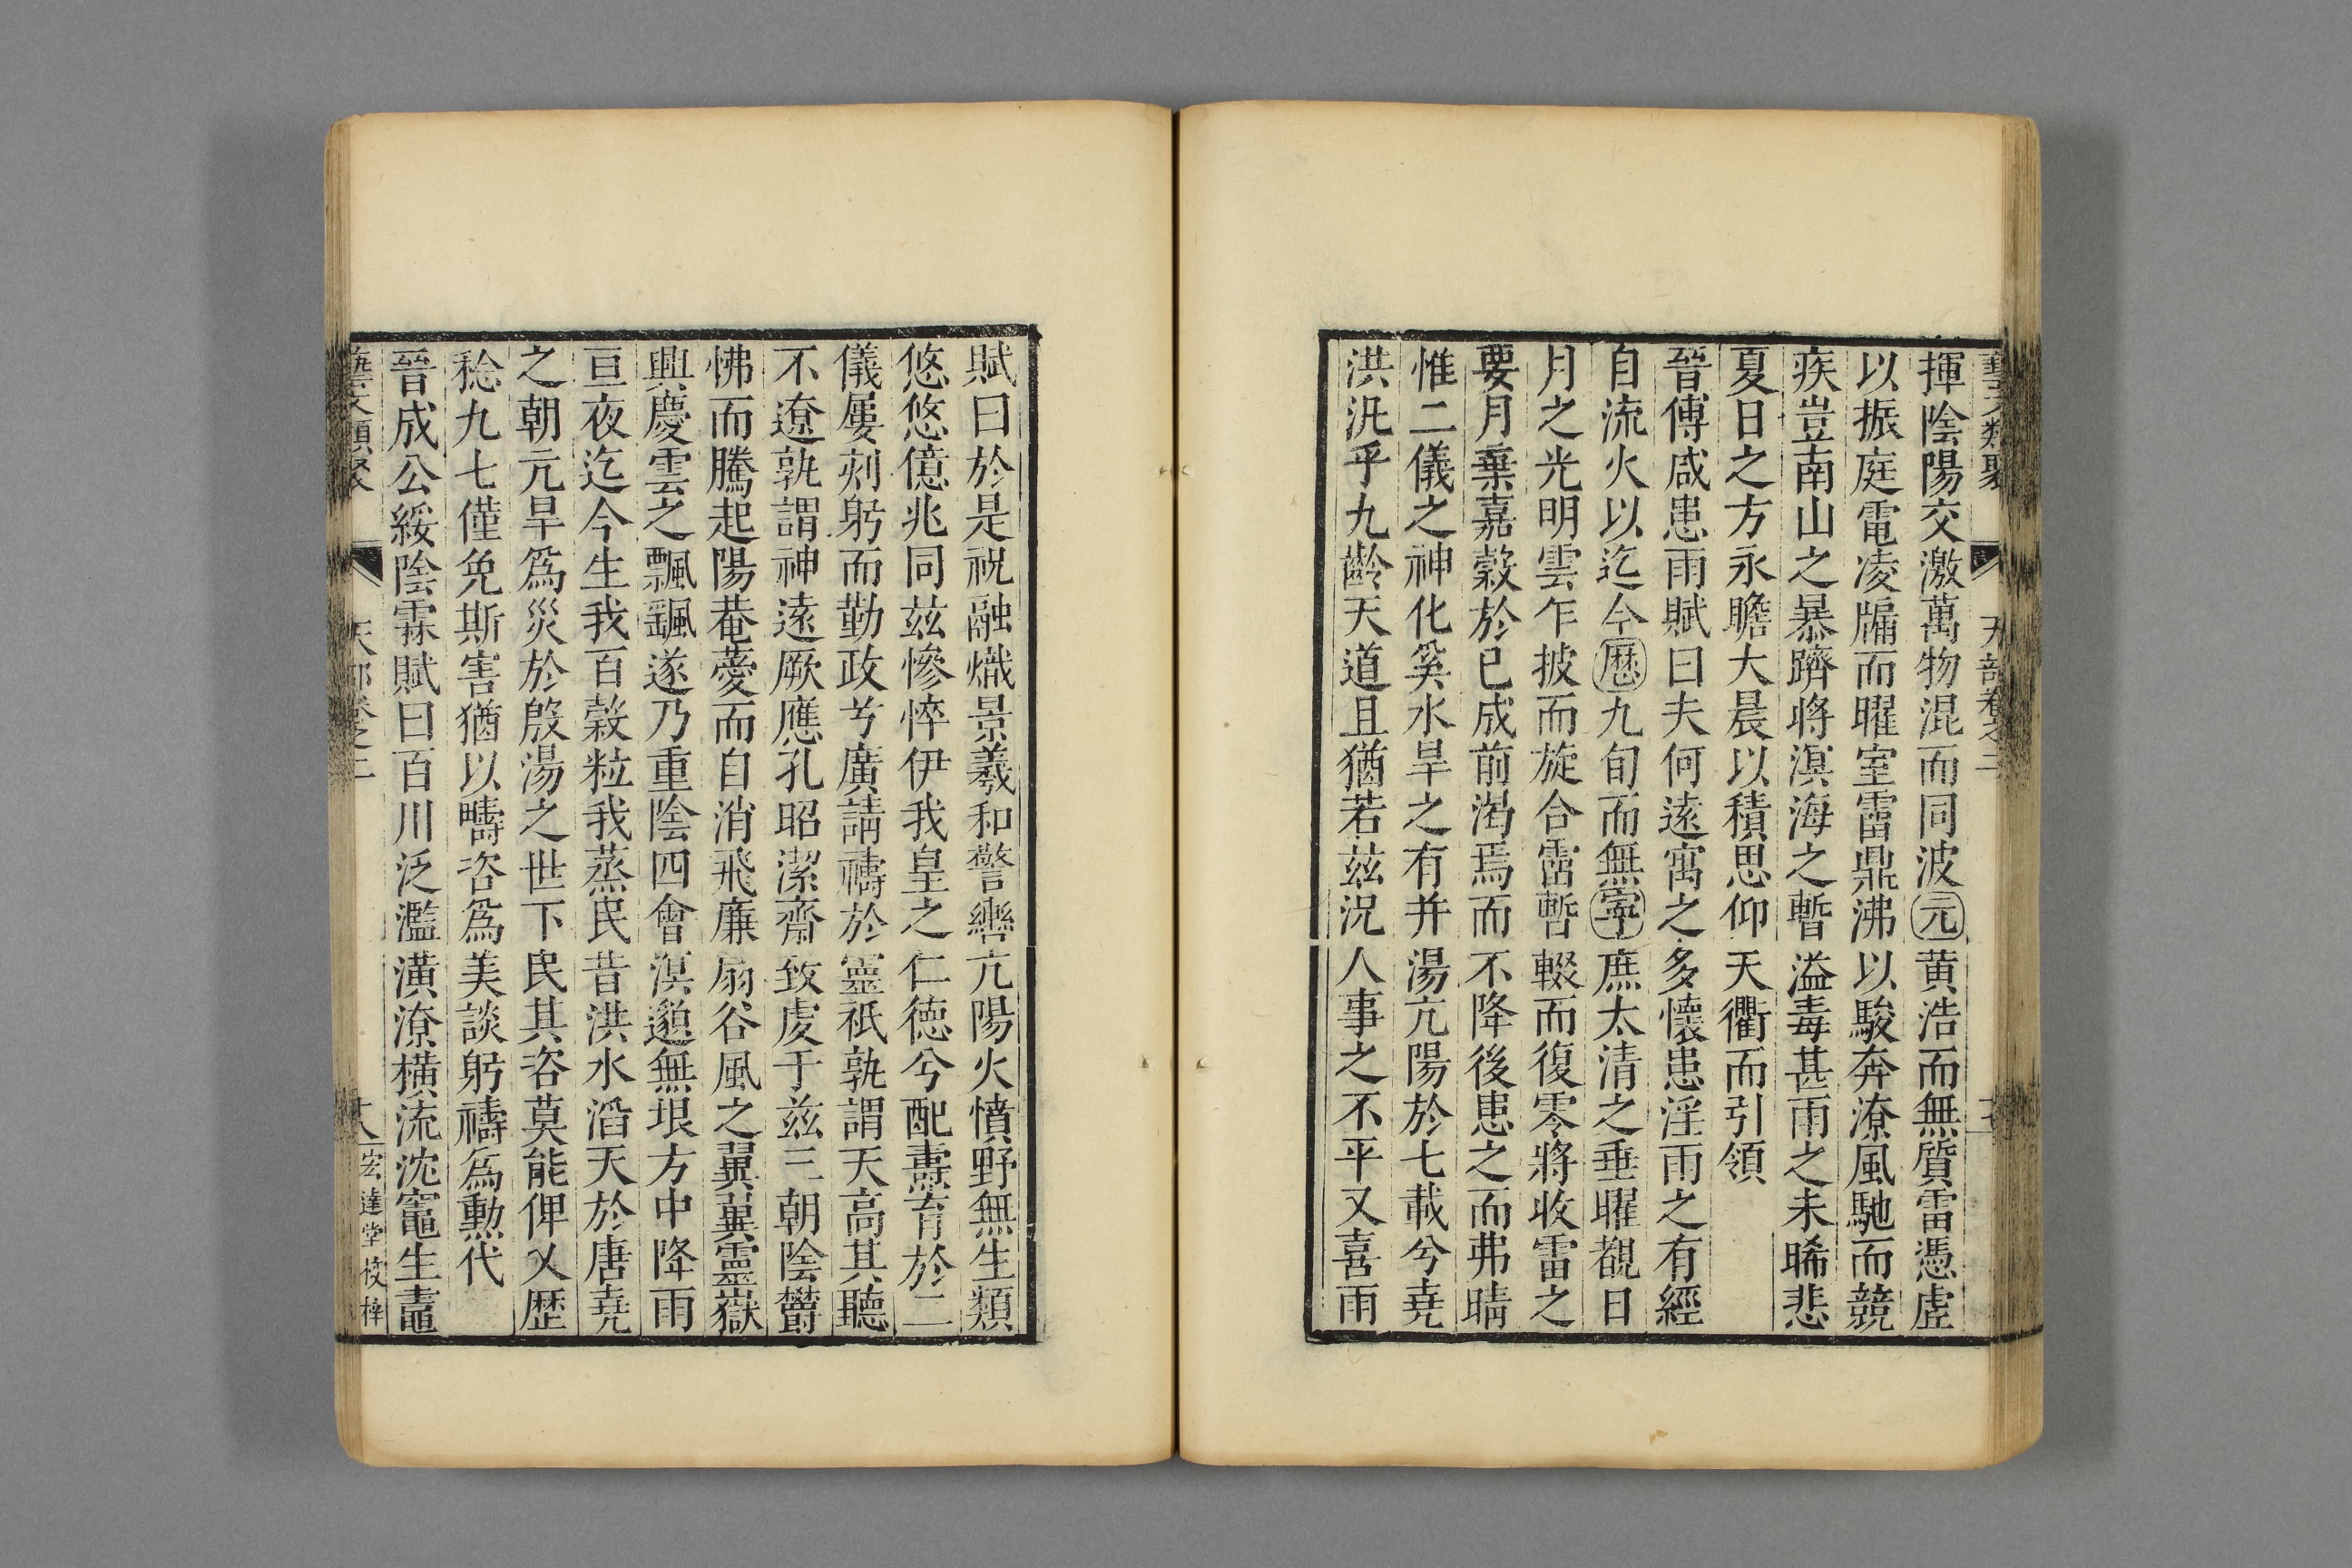 藝文類聚 天部卷之二
揮陰陽交激萬物混而同波元黃浩而無質雷憑虛
以振庭電凌牖而曜室霤鼎沸以駿奔潦風馳而競
疾豈南山之暴躋將溟海之暫溢毒甚雨之未晞悲
夏日之方永瞻大晨以積思仰天衢而引領
晉傅咸患雨賦曰夫何遠寓之多懷患淫雨之有經
自流火以迄今歷九旬而無寧庶太清之垂曜覩日
月之光明雲乍披而旋合霤暫輟而復零將收雷之
要月棄嘉穀於已成前渴焉而不降後患之而弗晴
惟二儀之神化奚水旱之有并湯亢陽於七載兮堯
洪汎乎九齡天道且猶若兹況人事之不平又喜雨
賦曰於是祝融熾景羲和警轡亢陽火憤野無生類
悠悠億兆同兹慘悴伊我皇之仁德兮配燾育於二
儀屢刻躬而勤政兮廣請禱於靈祇孰謂天高其聽
不遼孰謂神遠厥應孔昭潔齋致虔于兹三朝陰欝
怫而騰起陽菴薆而自消飛廉扇谷風之翼翼靈嶽
興慶雲之飄颻遂乃重陰四會溟邈無垠方中降雨
亘夜迄今生我百穀粒我蒸民昔洪水滔天於唐堯
之朝元旱爲災於殷湯之世下民其咨莫能俾乂歷
稔九七僅免斯害猶以疇咨爲美談躬禱爲勳代
晉成公綏陰霖賦曰百川泛濫潢潦橫流沈竈生鼃
藝文類聚 天部卷之二 十八 宏達堂校梓